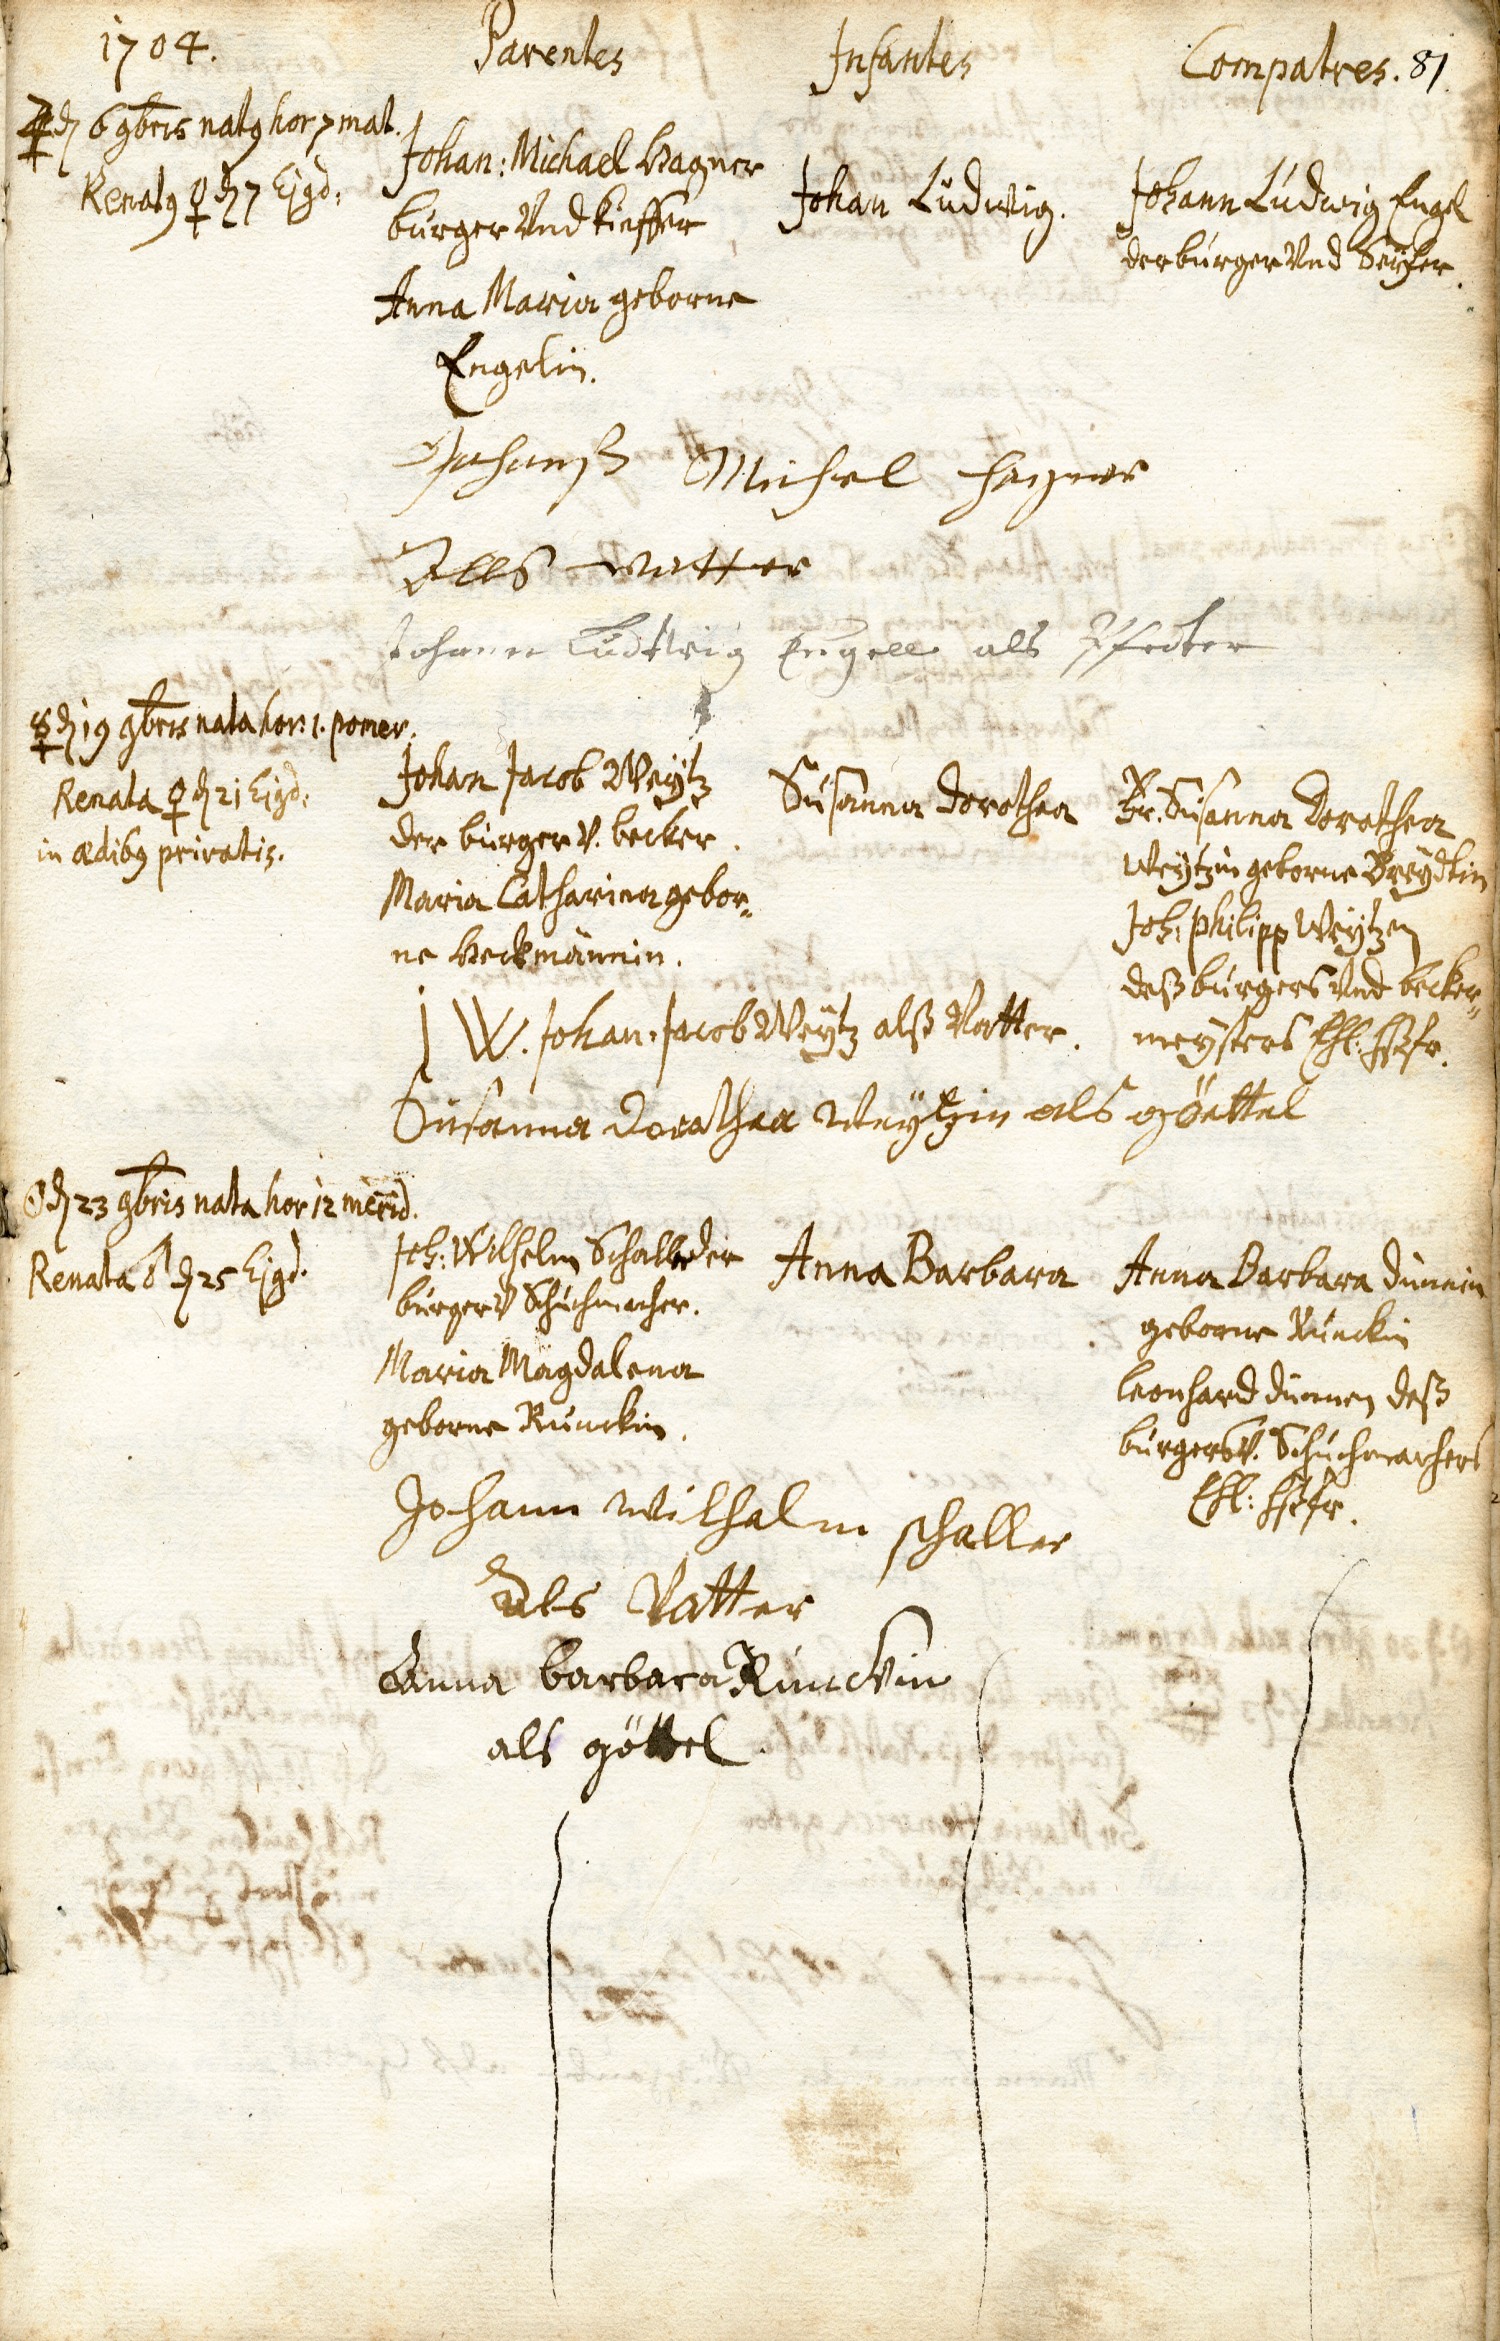 1704.
Parentes
Infantes
Compatres. 81.
♃ d 6 9bris natg hor 7 mat.
Renatg ♀ d 7 Ejgd:
Johan: Michael Hagner
burger Vnd kieffer
Anna Maria geborne
Engelin.
Johan Ludwig.
Johann Ludwig Engel
der burger Vnd
Johanß Michel hagner
Alls vatter
Johann Ludtwig Engell als Pfetter
☿ d 19 9bris nata hor: 1. pomer.
Renata ♀ d 21 Ejgd:
in ædibg privatis.
Johan Jacob Weytz
der burger v. becker.
Maria Catharina gebor=
ne Heckmännin.
Susanna Dorothea
Fr. Susanna Dorothea
Weytzin geborne Breydtin
Joh: philipp Weytzen
deß burgers Vnd becker=
meysters Ehl: Hßfr.
J W. Johan. Jacob Weytz alß Vatter.
Susanna Dorothea Weytzin als göettel
☉ d 23 9bris nata hor 12 merid.
Renata ♂ d 25 Ejgd.
Joh: Wilhelm Schaller der
burger V Schuchmacher.
Maria Magdalena
geborne Runckin.
Anna Barbara
Anna Barbara Dünnin
geborne Runckin
Leonhard Dünnen deß
burgers V. Schuchmachers
Ehl: Hßfr.
Johann Wilhalm schaller
als Vatter
Anna barbara Runckin
als göttel.